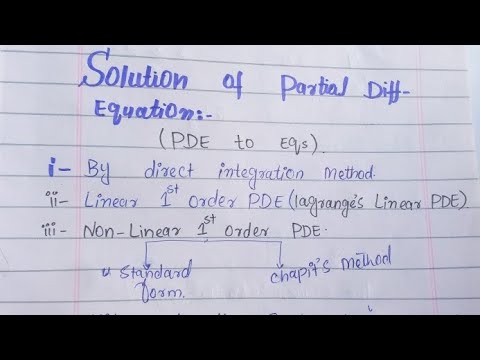 Solution of Partial Diff-
Equation:-
(PDE to Eqs).
i- By direct integration Method.
ii- Linear 1st Order PDE (lagrange's Linear PDE)
iii- Non-Linear 1st Order PDE.
Standard
form.
chapit's Method